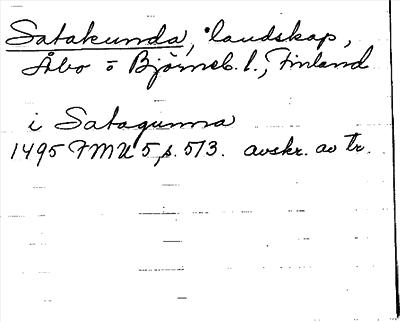 Satakunda, landskap,
Åbo o Björneb. l., Finland
i Satagunna
1495 FMU 5, p. 513. avskr. av tr.